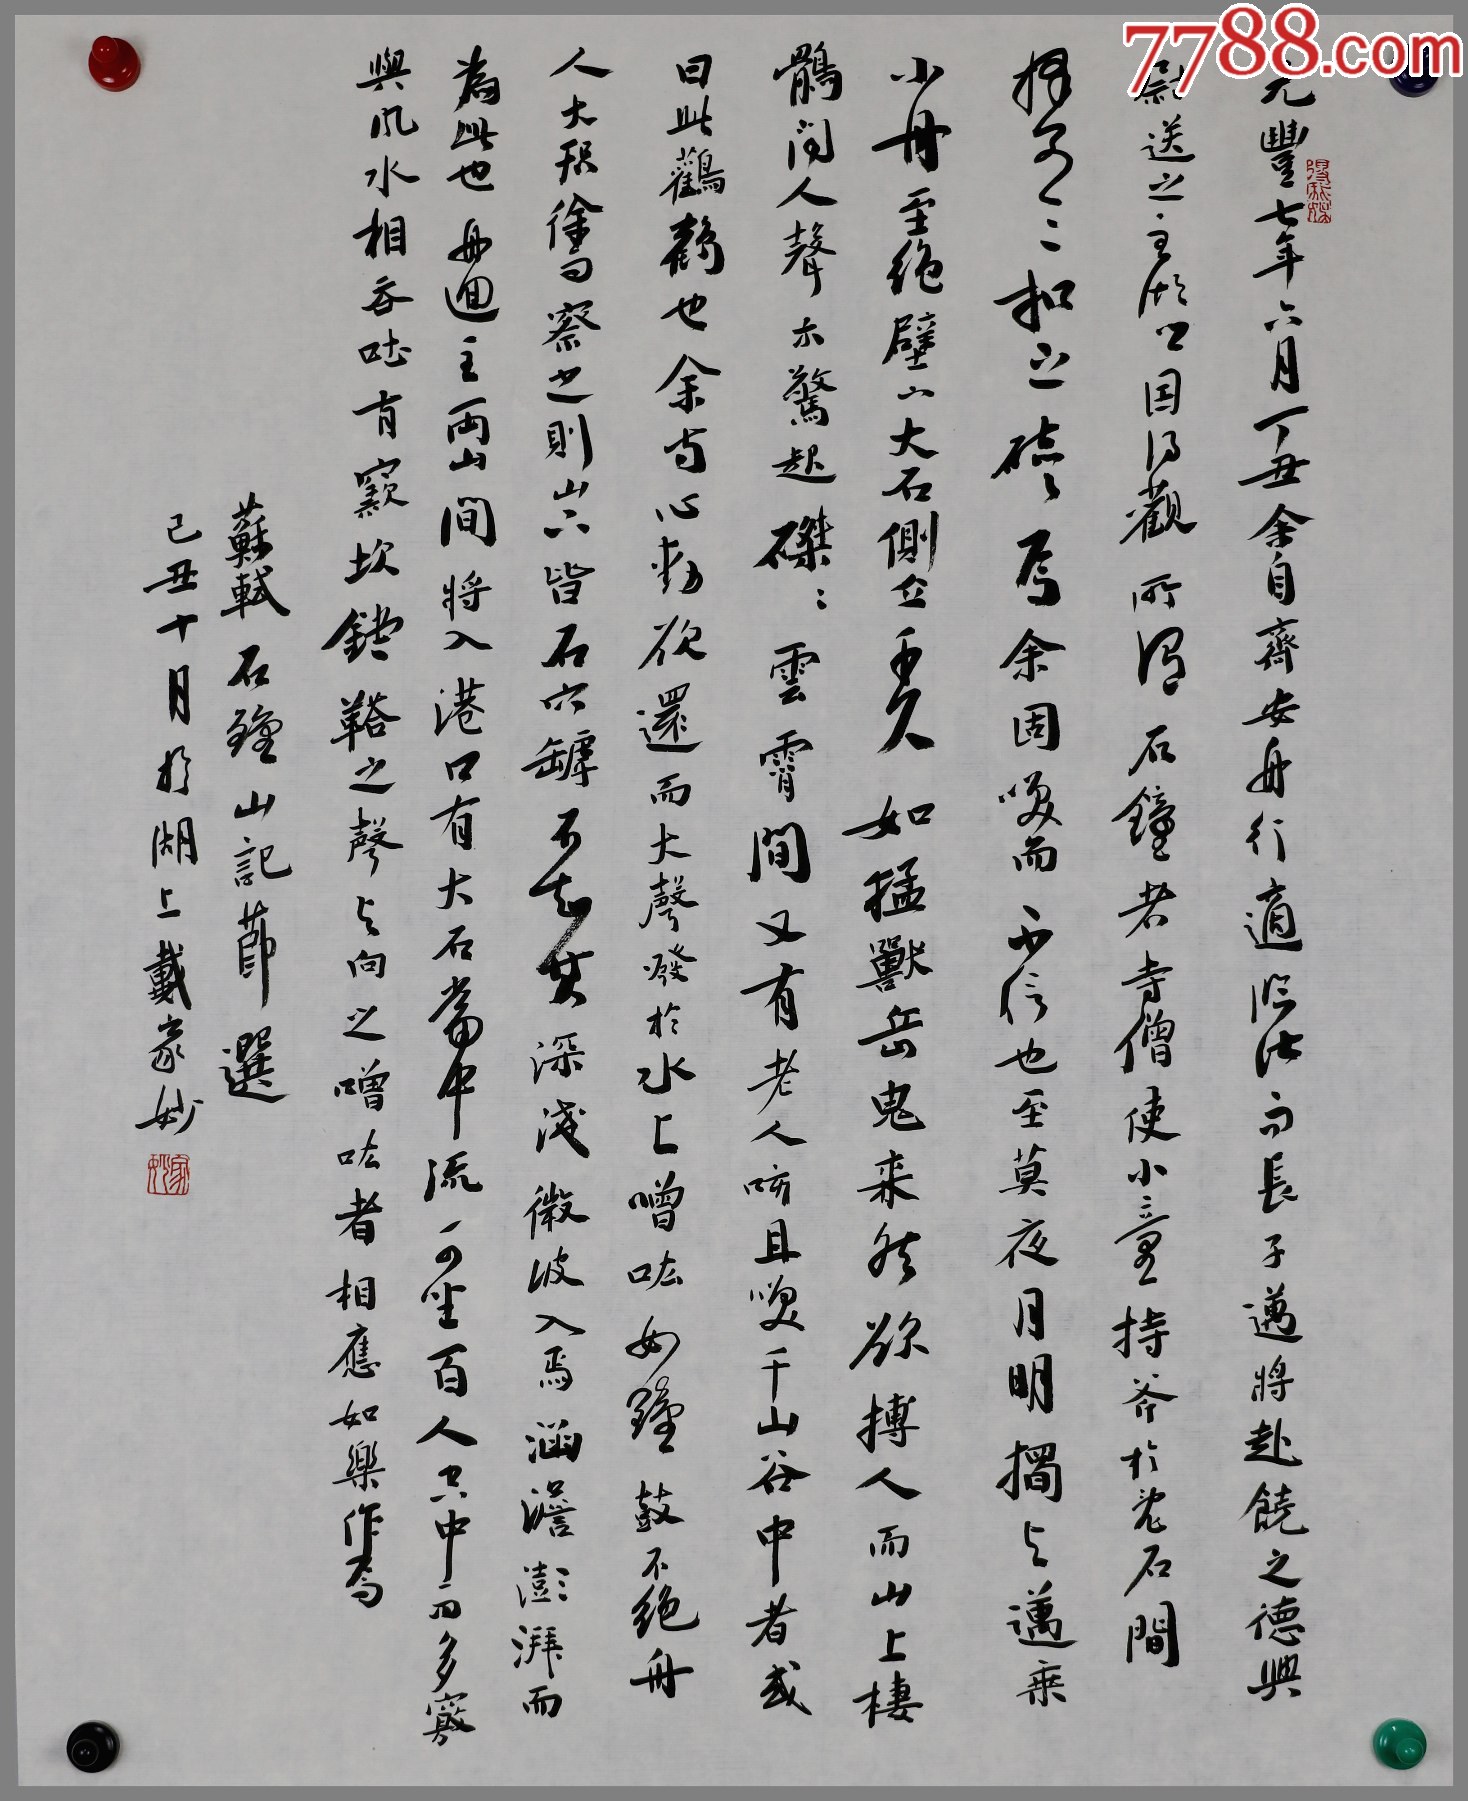 7788.com
元豐七年六月丁丑余自齊安舟行適臨汝而長子邁將赴饒之德興
尉送之至湖口因得觀所謂石鐘者寺僧使小童持斧於亂石間
擇其一二扣之硿硿焉余固笑而不信也至莫夜月明獨與邁乘
小舟至絕壁下大石側立千尺如猛獸奇鬼森然欲搏人而山上棲
鶻聞人聲亦驚起磔磔雲霄間又有老人咳且笑于山谷中者或
曰此鸛鶴也余方心動欲還而大聲發於水上噌吰如鐘鼓不絕舟
人大恐徐而察之則山下皆石穴罅不知其深淺微波入焉涵澹澎湃而
為此也舟迴至兩山間將入港口有大石當中流可坐百人空中而多竅
與風水相吞吐有窾坎鏜鞳之聲與向之噌吰者相應如樂作焉
蘇軾石鐘山記節選
己丑十月於湖上戴家妙
家妙